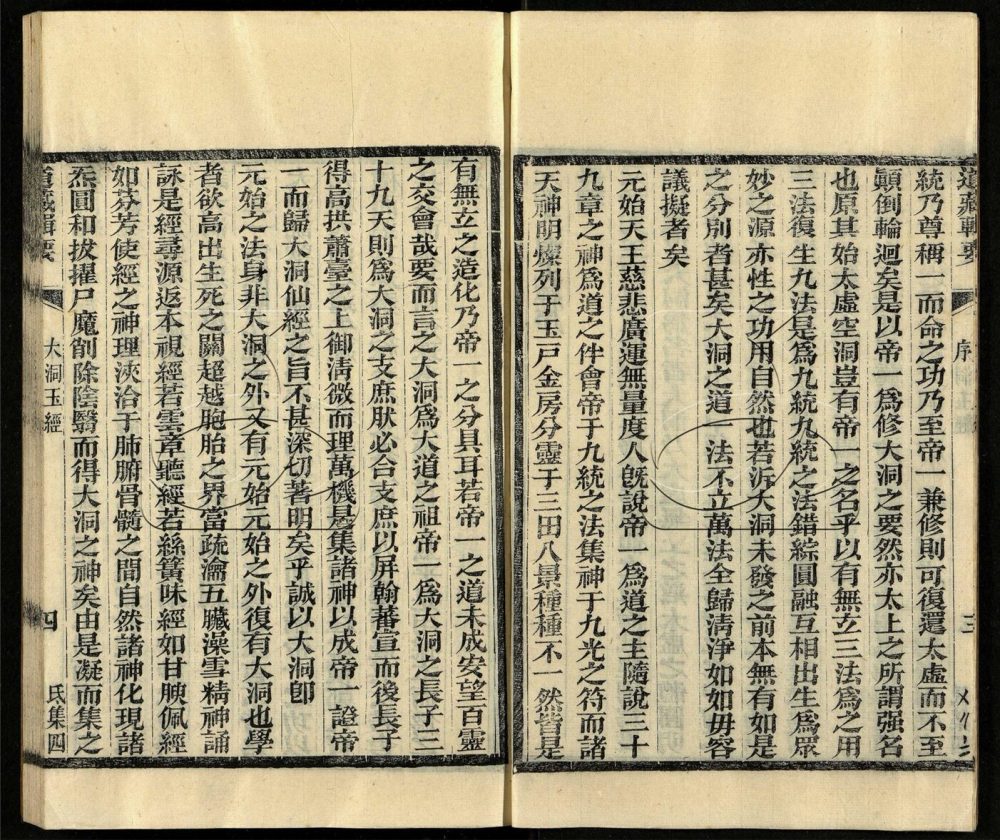 道藏輯要
序
三
統乃尊稱一而命之功乃至帝一兼修則可復還太虛而不至
顛倒輪迴矣是以帝一爲修大洞之要然亦太上之所謂强名
也原其始太虛空洞豈有帝一之名乎以有無立三法爲之用
三法復生九法是爲九統九統之法錯綜圓融互相出生爲眾
妙之源亦性之功用自然也若泝大洞未發之前本無有如是
之分別者甚矣大洞之道一法不立萬法全歸淸淨如如毋容
議擬者矣
元始天王慈悲廣運無量度人旣說帝一爲道之主隨說三十
九章之神爲道之件會帝于九統之法集神于九光之符而諸
天神明燦列于玉戸金房分靈于三田八景種種不一然皆是
有無立之造化乃帝一之分具耳若帝一之道未成安望百靈
之交會哉要而言之大洞爲大道之祖帝一爲大洞之長子三
十九天則爲大洞之支庶肰必合支庶以屏翰蕃宣而後長子
得高拱蕭臺之上御淸微而理萬機是集諸神以成帝一證帝
一而歸大洞仙經之旨不甚深切著明矣乎誠以大洞卽
元始之法身非大洞之外又有元始元始之外復有大洞也學
者欲高出生死之關超越胞胎之界當疏瀹五臟澡雪精神誦
詠是經尋源返本視經若雲章聽經若絲簧味經如甘腴佩經
如芬芳使經之神理浹洽于肺腑骨髓之間自然諸神化現諸
炁圓和拔擢尸魔削除陰翳而得大洞之神矣由是凝而集之
道藏輯要
大洞玉經
四
氐集四